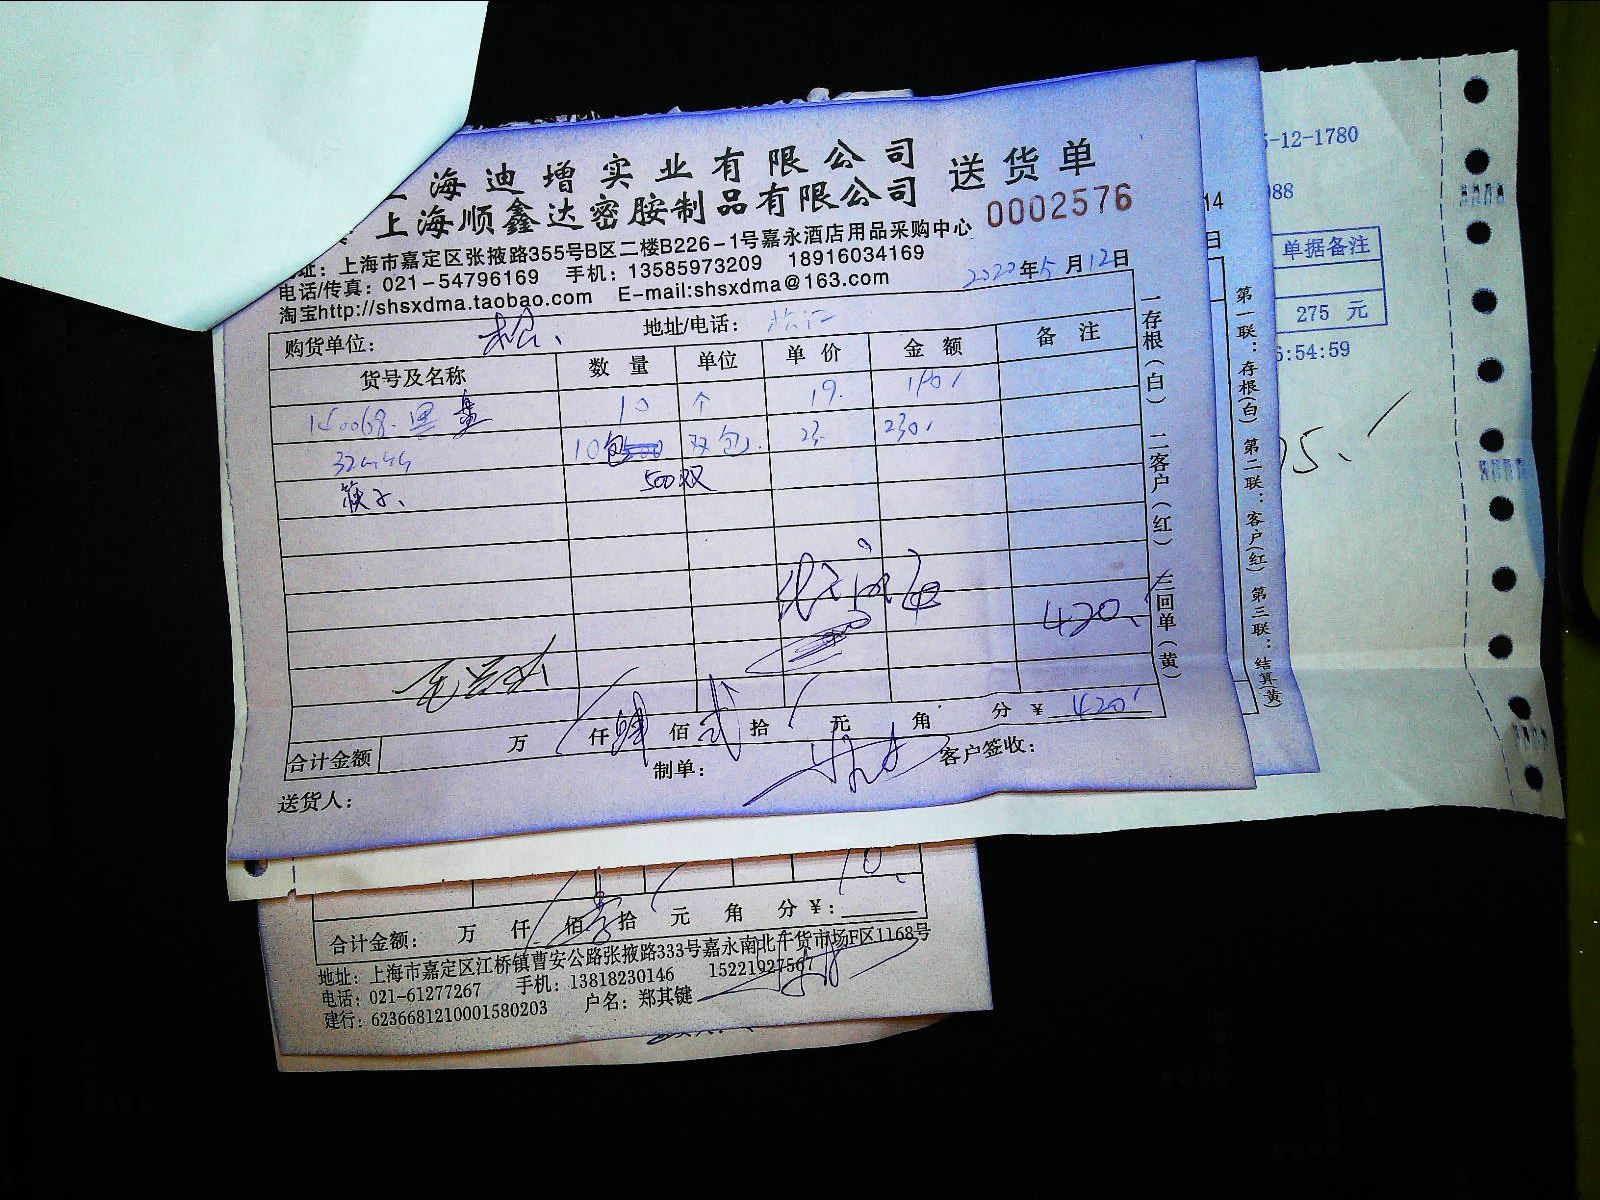 上海迪增实业有限公司
上海顺鑫达密胺制品有限公司 送货单
0002576
址：上海市嘉定区张掖路355号B区二楼B226-1号嘉永酒店用品采购中心
电话/传真：021-54796169 手机：13585973209 18916034169
淘宝http://shsxdma.taobao.com E-mail:shsxdma@163.com
2020年5月12日
购货单位： 松 地址/电话： 松江
货号及名称 数量 单位 单价 金额 备注
15006g. 黑盘 10 个 19. 190
10包 双包. 23. 230
筷子、 500双
420
合计金额 万 仟 肆 佰 贰 拾 元 角 分 ¥ 420
送货人： 制单： 客户签收：
一存根（白） 二客户（红） 三回单（黄）
14
日
第一联：存根(白) 第二联：客户(红) 第三联：结算(黄)
5-12-1780
988
单据备注
275 元
6:54:59
10
合计金额： 万 仟 佰 壹 拾 元 角 分 ¥：
地址：上海市嘉定区江桥镇曹安公路张掖路333号嘉永南北干货市场F区1168号
电话：021-61277267 手机：13818230146 15221927567
建行：6236681210001580203 户名：郑其键